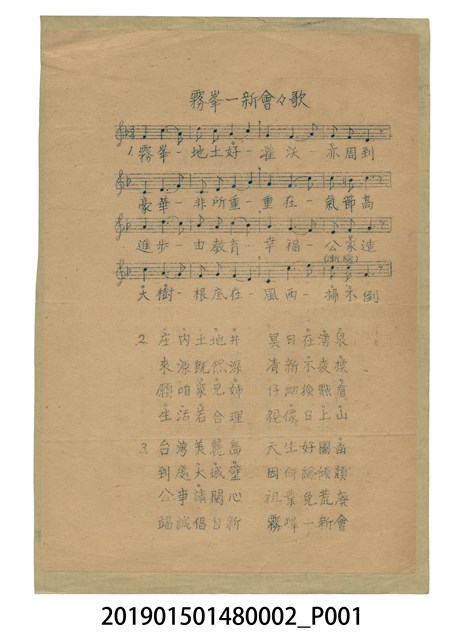 霧峯一新會々歌
1. 霧峯-地土好-灌沃-亦周到
豪華-非所重-重在-氣節高
進步-由教育-幸福-公家造
大樹-根底在-風雨-掃不倒
2. 庄內土地井 冥日在湧泉
來源既然深 清新不衰
願咱眾兄姉 仔細
生活若合理 親像日上山
3. 台灣美麗島 天生好圖画
到處大 因何
公事請關心 祖業免荒廢
竭誠倡自新 霧峰一新會
201901501480002_P001